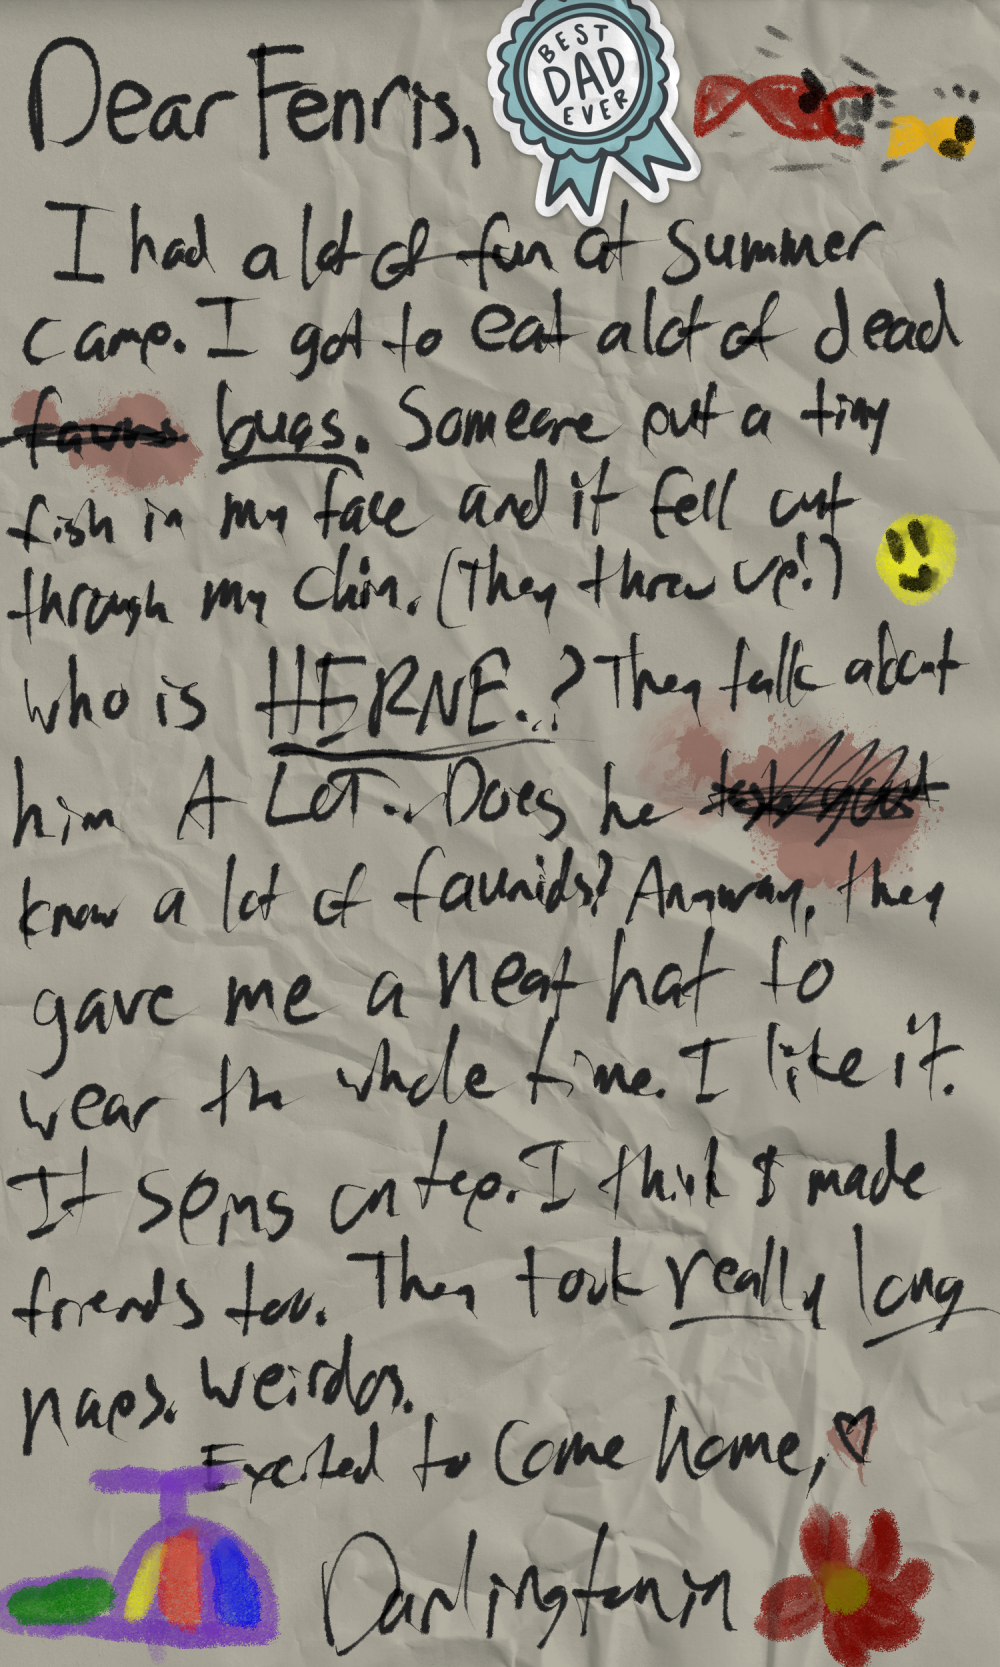 Dear Fenris,
BEST
DAD
EVER
I had a lot of fun at Summer
camp. I got to eat a lot of dead
fauns bugs. Someone put a tiny
fish in my face and it fell out
through my chin. (They threw up!)
who is HERNE..? They talk about
him A LOT.. Does he
know a lot of faunids? Anyway, they
gave me a neat hat to
wear th whole time. I like it.
It spins on top. I think I made
friends too. They took really long
naps. weirdos.
Excited to come home,
Darlingtonin